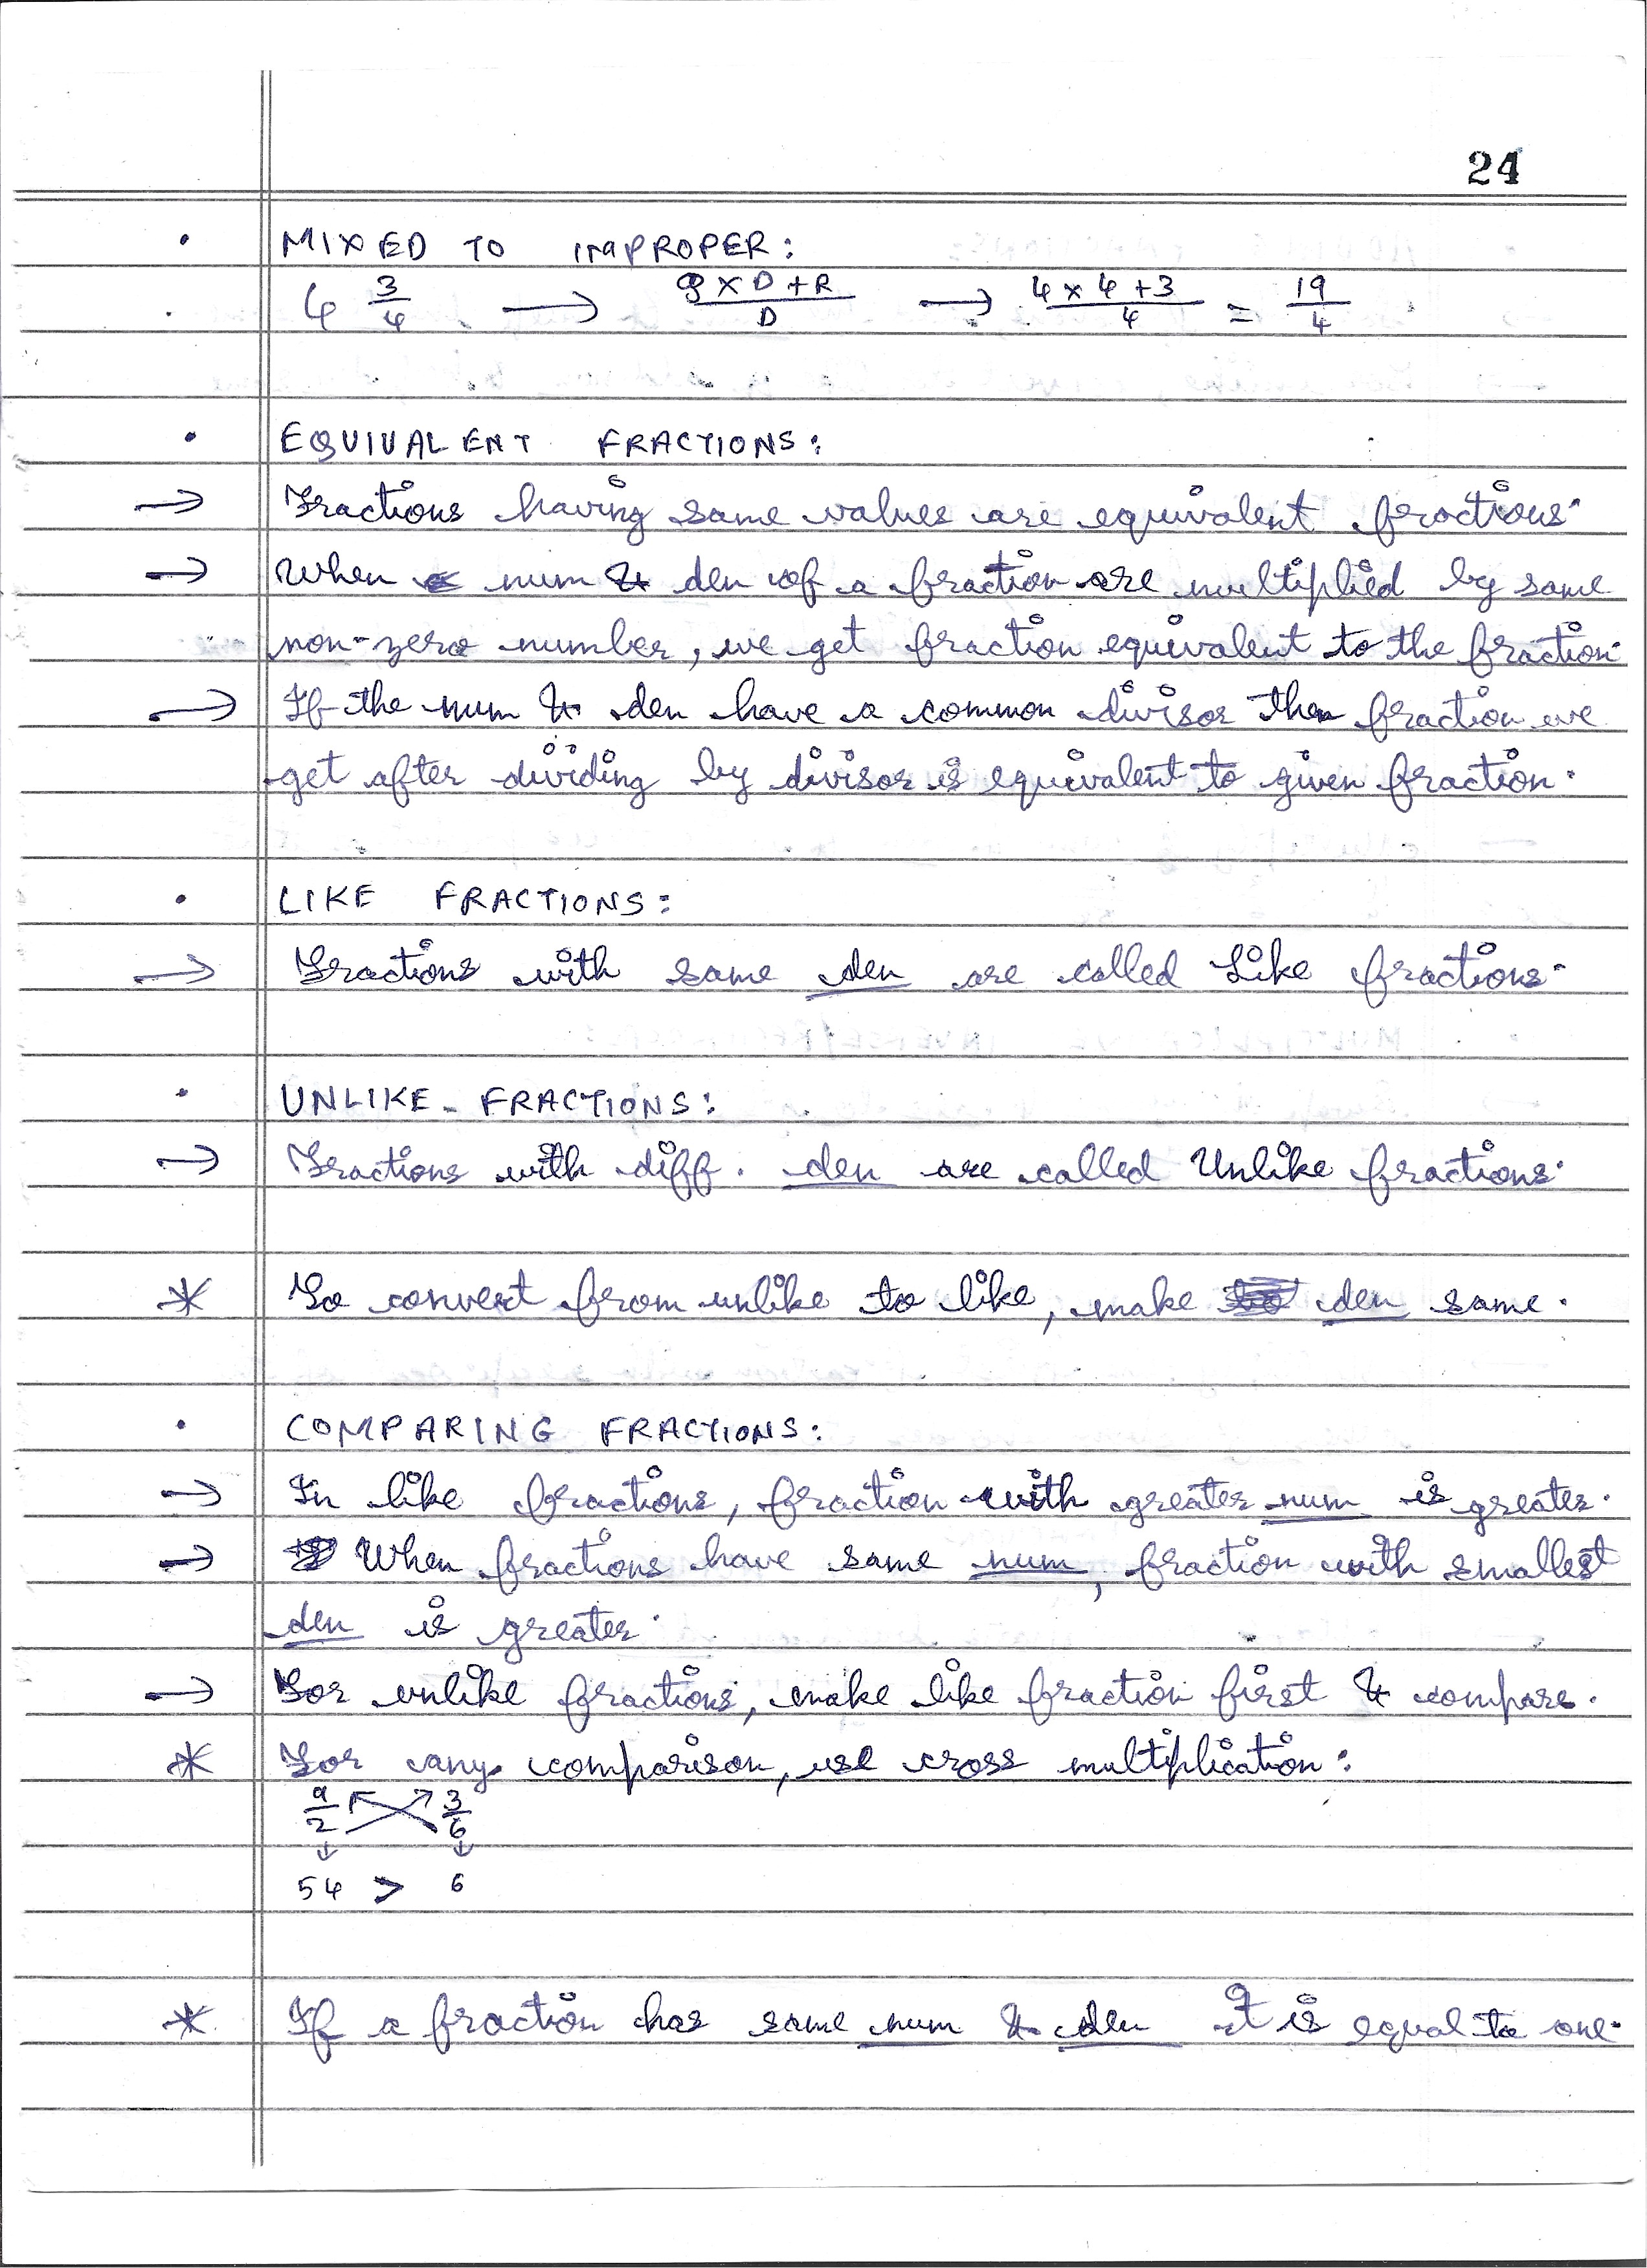 24
• MIXED TO IMPROPER:
4 3/4 → Q × D + R / D → 4 × 4 + 3 / 4 = 19/4
• EQUIVALENT FRACTIONS:
→ Fractions having same values are equivalent fractions.
→ When num & den of a fraction are multiplied by same
non-zero number, we get fraction equivalent to the fraction.
→ If the num & den have a common divisor the fraction we
get after dividing by divisor is equivalent to given fraction.
• LIKE FRACTIONS:
→ Fractions with same den are called Like fractions.
• UNLIKE FRACTIONS:
→ Fractions with diff. den are called Unlike fractions.
* To convert from unlike to like, make den same.
• COMPARING FRACTIONS:
→ In like fractions, fraction with greater num is greater.
→ When fractions have same num, fraction with smallest
den is greater.
→ For unlike fractions, make like fraction first & compare.
* For any comparison, use cross multiplication:
9/2 3/6
↓ ↓
54 > 6
* If a fraction has same num & den it is equal to one.